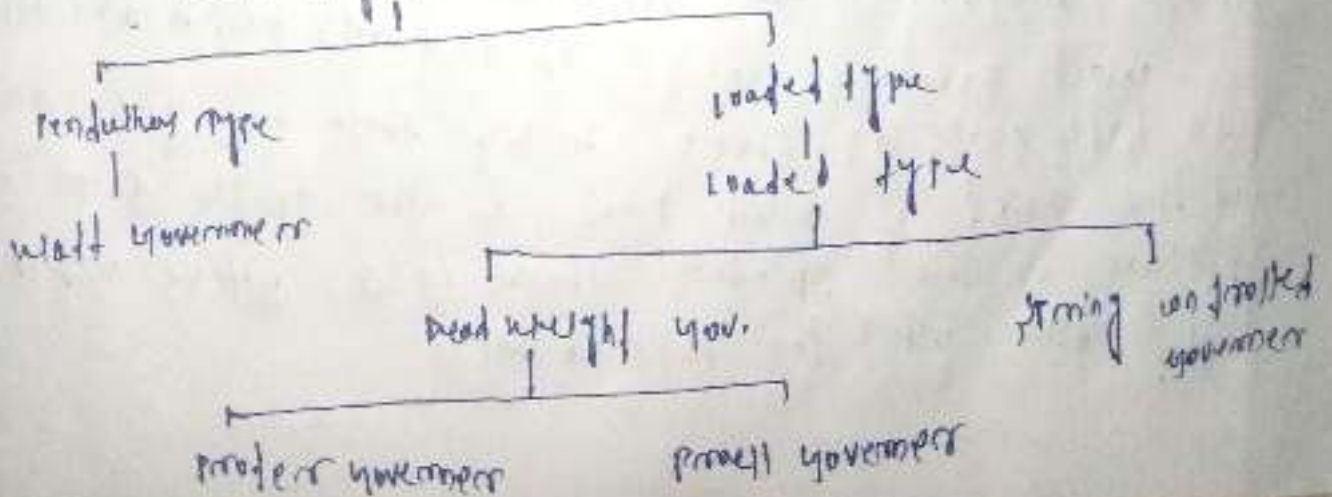 Pendulum type
Loaded type
Loaded type
Watt governer
Dead weight gov.
Spring controlled
governer
Porter governer
Proell governer